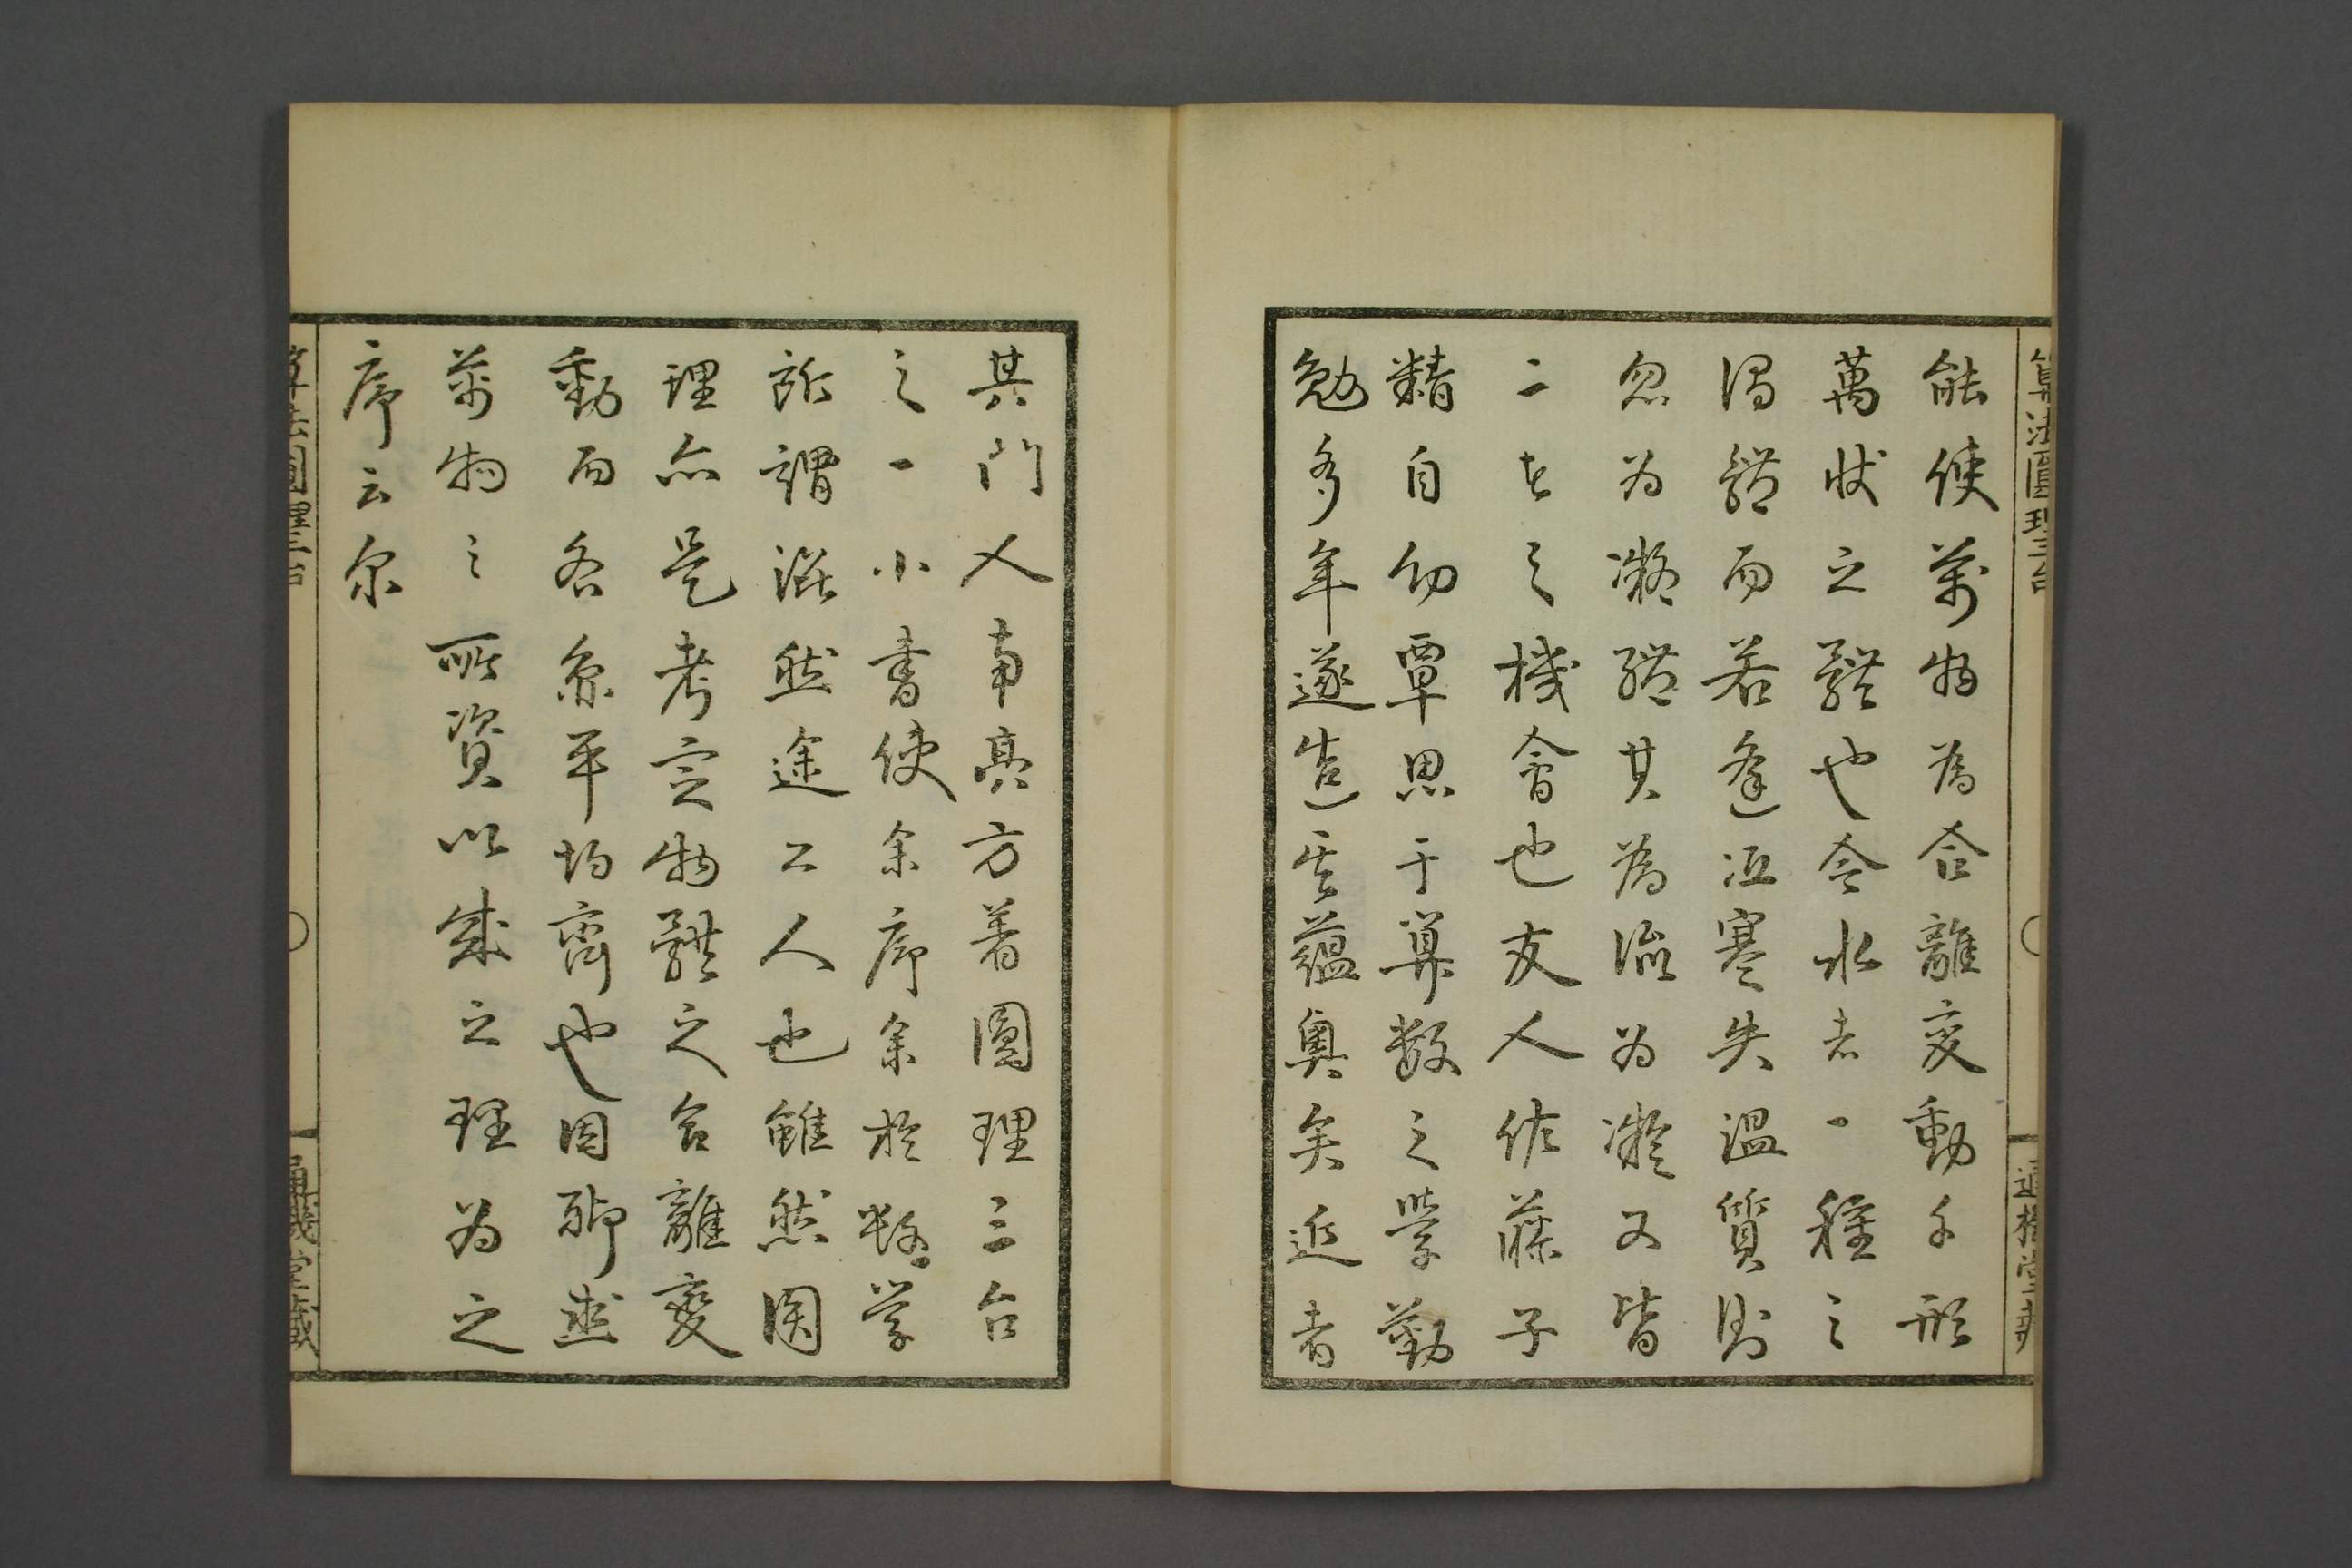 算法圓理三台
能使萬物為合離変動千形
萬状之體也今水者一種之
濁體而若逢沍寒失温質則
忽為凝體其為流為凝又皆
二之機會也友人佐藤子
精自幼覃思于算数之学勤
勉多年遂造其蘊奥矣近者
其門人南亮方著圓理三台
之一小書使余序余於数学
所謂茫然途上人也雖然圓
理亦是考定物體之合離變
動而各象平均齊也因聊述
萬物之所資以成之理為之
序云尓
算法圓理三台